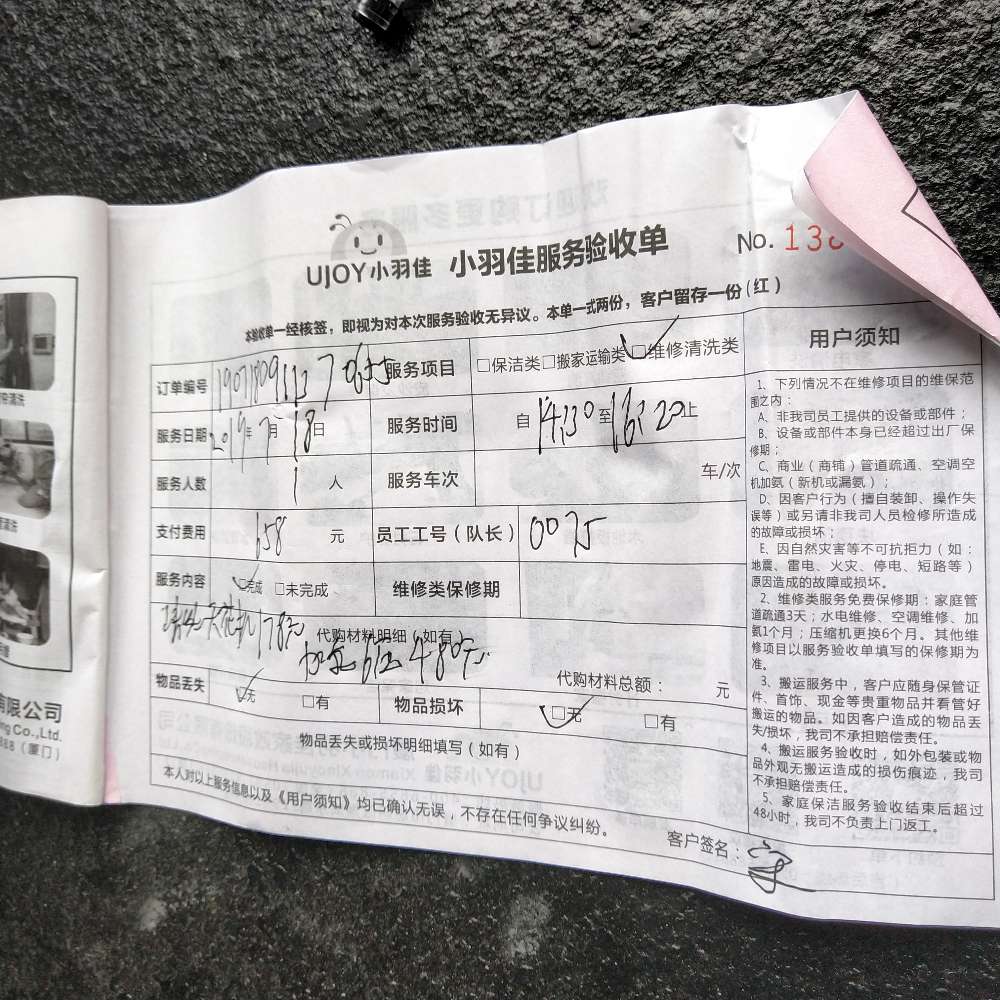 UJOY小羽佳 小羽佳服务验收单 No. 138
本验收单一经核签，即视为对本次服务验收无异议。本单一式两份，客户留存一份(红)
订单编号 服务项目 □保洁类□搬家运输类□维修清洗类
服务日期 2019年7月18日 服务时间 自14:30至16:20止
服务人数 1人 服务车次 车/次
支付费用 658元 员工工号（队长） 0075
服务内容 □完成 □未完成 维修类保修期
代购材料明细（如有）
178元
480元
代购材料总额： 元
物品丢失 □无 □有 物品损坏 □无 □有
物品丢失或损坏明细填写（如有）
本人对以上服务信息以及《用户须知》均已确认无误，不存在任何争议纠纷。
客户签名：
用户须知
1、下列情况不在维修项目的维保范
围之内：
A、非我司员工提供的设备或部件；
B、设备或部件本身已经超过出厂保
修期；
C、商业（商铺）管道疏通、空调空
机加氨（新机或漏氨）；
D、因客户行为（擅自装卸、操作失
误等）或另请非我司人员检修所造成
的故障或损坏；
E、因自然灾害等不可抗拒力（如：
地震、雷电、火灾、停电、短路等）
原因造成的故障或损坏。
2、维修类服务免费保修期：家庭管
道疏通3天；水电维修、空调维修、加
氨1个月；压缩机更换6个月。其他维
修项目以服务验收单填写的保修期为
准。
3、搬运服务中，客户应随身保管证
件、首饰、现金等贵重物品并看管好
搬运的物品。如因客户造成的物品丢
失/损坏，我司不承担赔偿责任。
4、搬运服务验收时，如外包装或物
品外观无搬运造成的损伤痕迹，我司
不承担赔偿责任。
5、家庭保洁服务验收结束后超过
48小时，我司不负责上门返工。
有限公司
ng Co.,Ltd.
888（厦门）